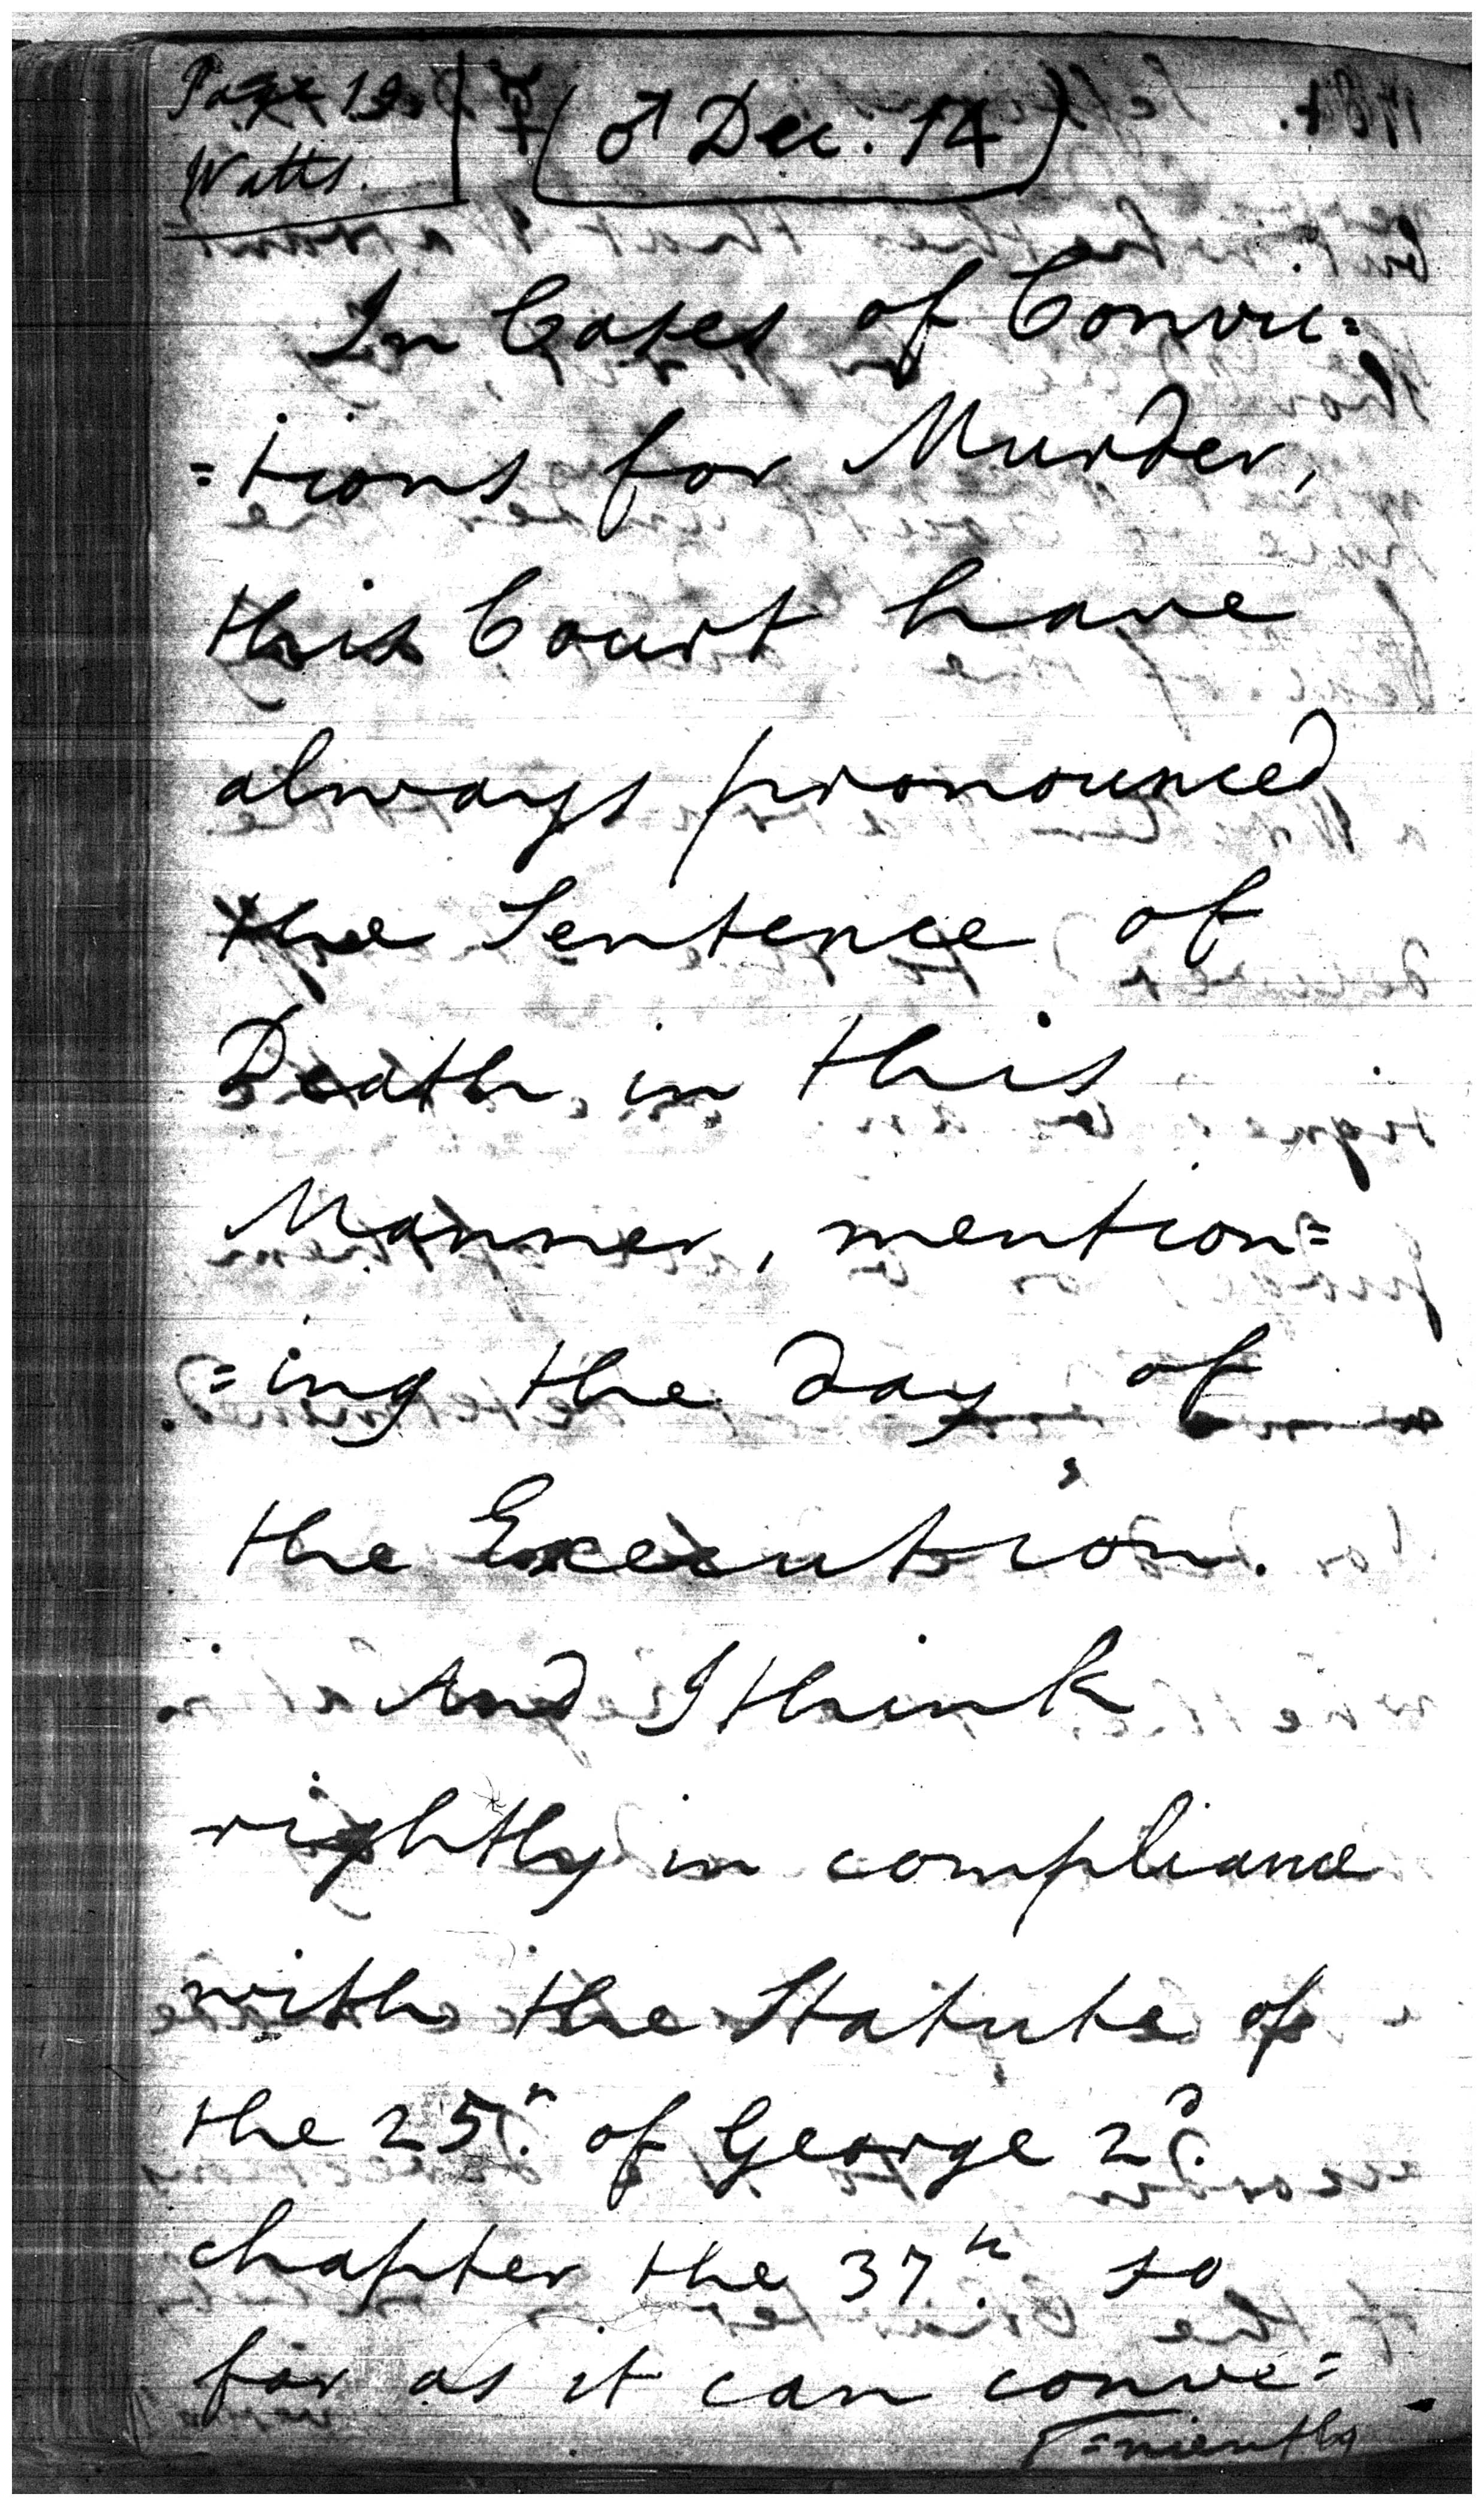 Page 19.
Watts.
(♂ Dec. 14)
In Cases of Convic=
=tions for Murder,
this Court have
always pronounced
the Sentence of
Death in this
Manner, mention=
=ing the day of
the Execution.
And I think
rightly in compliance
with the Statute of
the 25.th of George 2.d
chapter the 37.th so
far as it can conve=
=niently